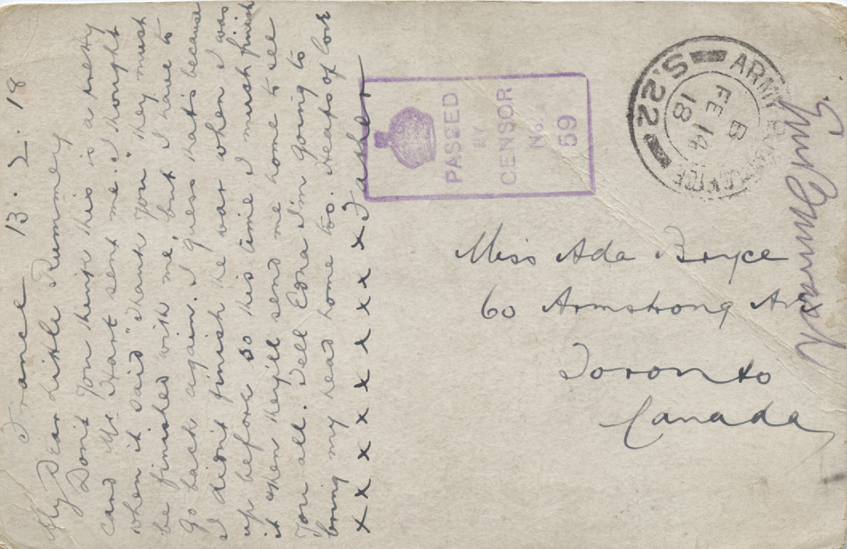 France 13.2.18
My Dear Little Rummey
Don't you think this is a pretty
card Mr Hart sent me. I thought
when it said "Thank you" they must
be finished with me, but I have to
go back again. I guess that's because
I didnt finish the war when I was
up before so this time I must finish
it then they'll send me home to see
you all. Tell Edna I'm going to
bring my head home too. Heaps of love
x x x x x x x x x Father
PASSED
BY
CENSOR
No.
59
ARMY POST OFFICE
B
FE 14
18
S.22
Miss Ada Bryce
60 Armstrong Ave
Toronto
Canada